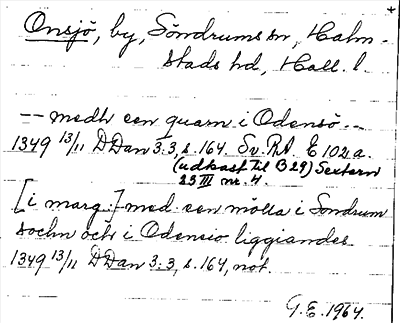 Onsjö, by, Söndrums sn, Halm-
stads hd, Hall. l.
-- medh een quarn i Odensö --
1349 13/11 DDan 3:3, s. 164. Sv. RA. E 102 a.
(udkast til B 29) Sextern
23 III nr. 4.
[i marg:] med een mölla i Söndrum
sochn och i Odensio liggiandes
1349 13/11 DDan 3:3, s. 164, not.
G.E. 1964.